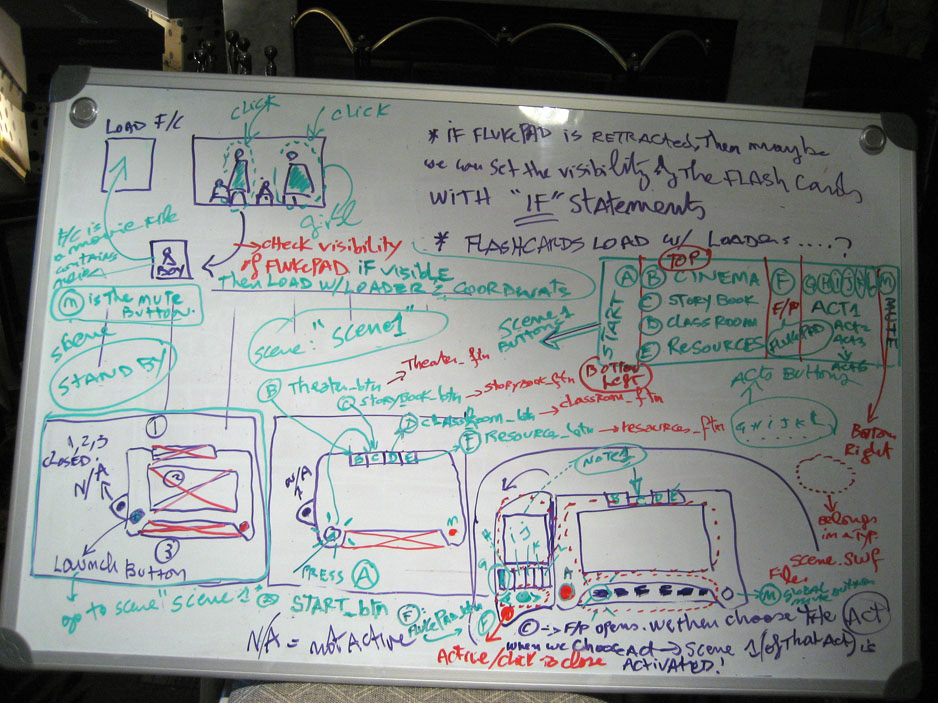 LOAD F/C
CLICK
CLICK
girl
BOY
* IF FLUKEPAD is RETRACTED, Then maybe
we can set the visibility of the FLASH Cards
WITH "IF" Statements
* FLASHCARDS LOAD w/ Loaders.....?
F/C is
a movie file
contains
→ CHECK visibility
of FLUKEPAD IF visible
Then LOAD w/LOADER & COORDINATES
(M) is the mute
Button.
STANDBY
scene: "scene1"
scene 1
Buttons
TOP
START
A
B CINEMA
C STORYBOOK
D CLASSROOM
E RESOURCES
F
F/P
FLUKEPAD
G H I J K L
ACT1
ACT2
ACT3
ACT6
M
MUTE
Bottom
Left
ACTS Buttons
G H I J K L
Bottom
Right
B Theater_btn → Theater_ftn
C storybook_btn → storybook_ftn
D classroom_btn → classroom_ftn
E Resource_btn → resources_ftn
1, 2, 3
CLOSED.
N/A
1
2
3
Launch Button
go to scene "scene 1"
N/A
B C D E
M
PRESS A
START_btn
N/A = not Active
NOTE 1
B C D E
i j
K
G
A
F
F is
FLUKEPAD_btn
Active/click to close
Belongs
in a
scene.swf
File.
M Global
mute button
C → F/P opens. we then choose the Act
when we choose Act → Scene 1 (of That Act) is
ACTIVATED!